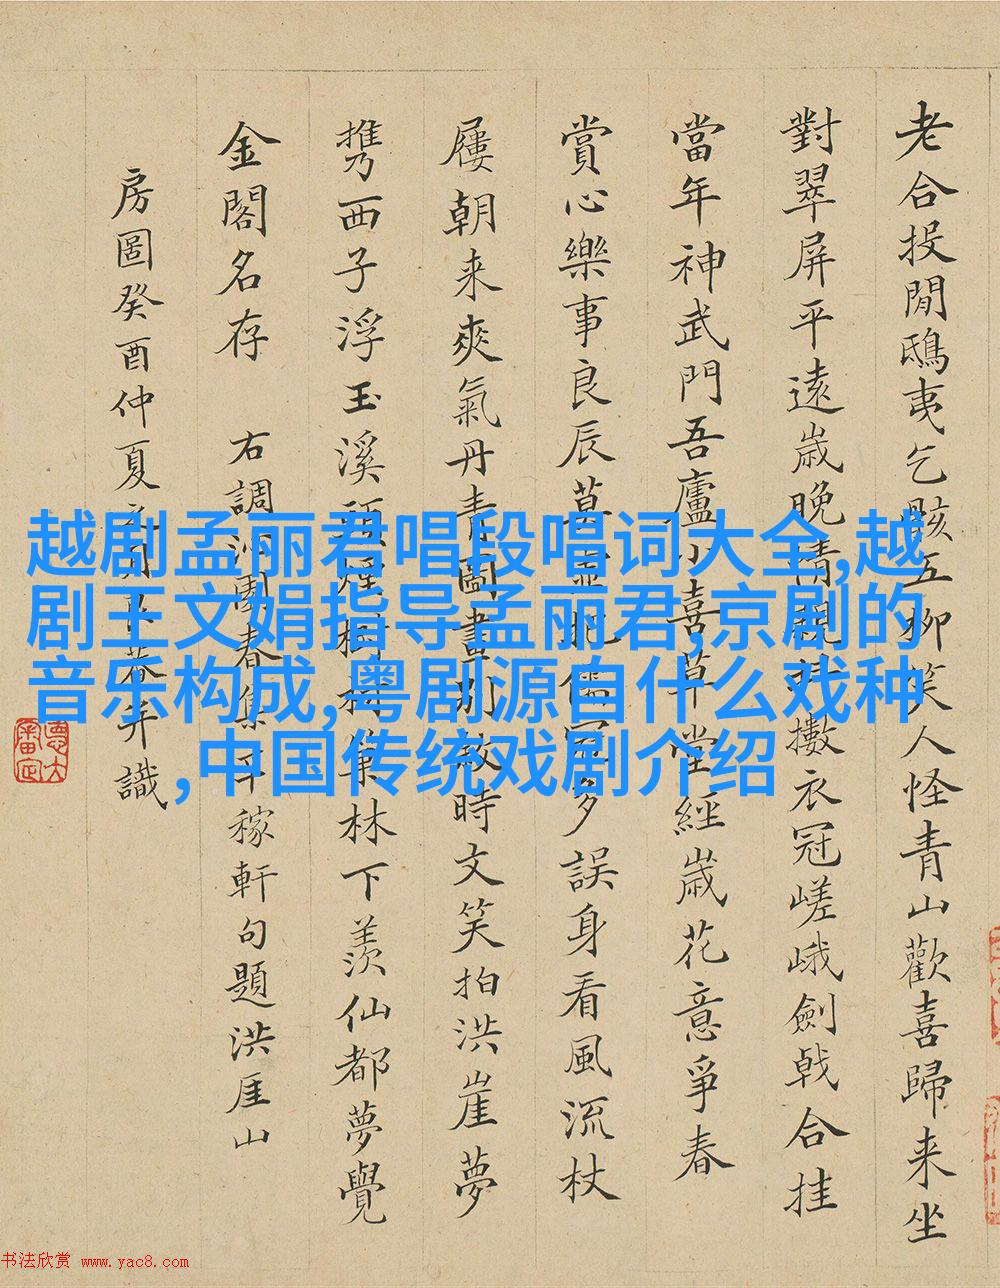 老合投閒鴟夷乞骸五柳笑人怪青山歡喜歸来坐
對翠屏平遠歲晚情親擻衣冠嵯峨劍戟合挂
當年神武門吾廬小喜草堂經歲花意爭春
賞心樂事良辰莫儒冠多誤身看風流杖
屨朝来爽氣丹青圖畫別教時文笑拍洪崖夢
携西子浮玉溪頭煙樹林下羨仙都夢覺
金閣名存 右調沁園春集辛稼軒句題洪厓山
房圖癸酉仲夏之月識
越剧孟丽君唱段唱词大全,越
剧王文娟指导孟丽君,京剧的
音乐构成,粤剧源自什么戏种
,中国传统戏剧介绍
书法欣赏 www.yac8.com